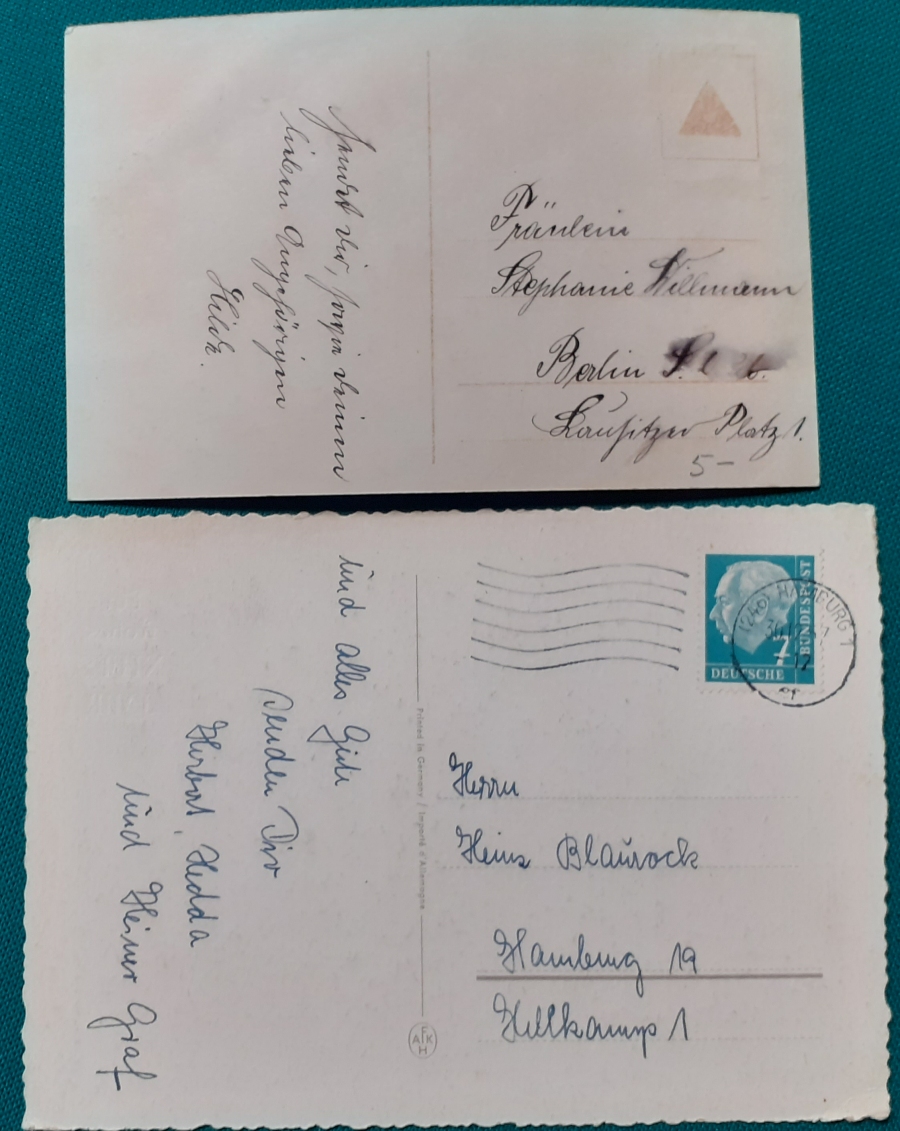 Sendet dir, sowie deinen
lieben Angehörigen
Hilde.
Fräulein
Stephanie Willmann
Berlin S.
Lausitzer Platz 1.
5-
und alles Gute
senden Dir
Herbert, Hedda
und Heiner Graf
Printed in Germany / Importé d'Allemagne
AFKH
HAMBURG 1
7
DEUTSCHE
BUNDESPOST
Herrn
Heinz Blaurock
Hamburg 19
Hellkamp 1